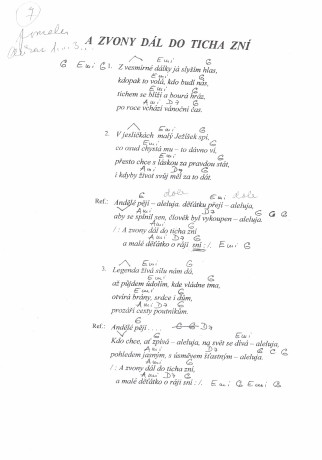 A ZVONY DÁL DO TICHA ZNÍ
G Emi G
Emi G
1. Z vesmírné dálky já slyším hlas,
Emi G
kdopak to volá, kdo budí nás,
Emi G
tichem se blíží a bourá hráz,
Ami D7 G
po roce vchází vánoční čas.
Emi G
2. V jesličkách malý Ježíšek spí,
Emi G
co osud chystá mu – to dávno ví,
Emi G
přesto chce s láskou za pravdou stát,
Ami D7 G
i kdyby život svůj měl za to dát.
G dole Emi dole
Ref.: Andělé pějí – aleluja, děťátku přejí – aleluja,
Ami D7 G C G
aby se splnil sen, člověk byl vykoupen – aleluja.
Ami G
/: A zvony dál do ticha zní
Ami D7 G
a malé děťátko o ráji sní :/. Emi G
Emi G
3. Legenda živá sílu nám dá,
Emi G
až půjdem údolím, kde vládne tma,
Emi G
otvírá brány, srdce i dům,
Ami D7 G
prozáří cesty poutníkům.
G
Ref.: Andělé pějí . . . . D7
G Emi
Kdo chce, ať zpívá – aleluja, na svět se dívá – aleluja,
Ami D7 G C G
pohledem jasným, s úsměvem šťastným – aleluja.
Ami G
/: A zvony dál do ticha zní,
Ami D7 G
a malé děťátko o ráji sní :/. Emi G Emi G